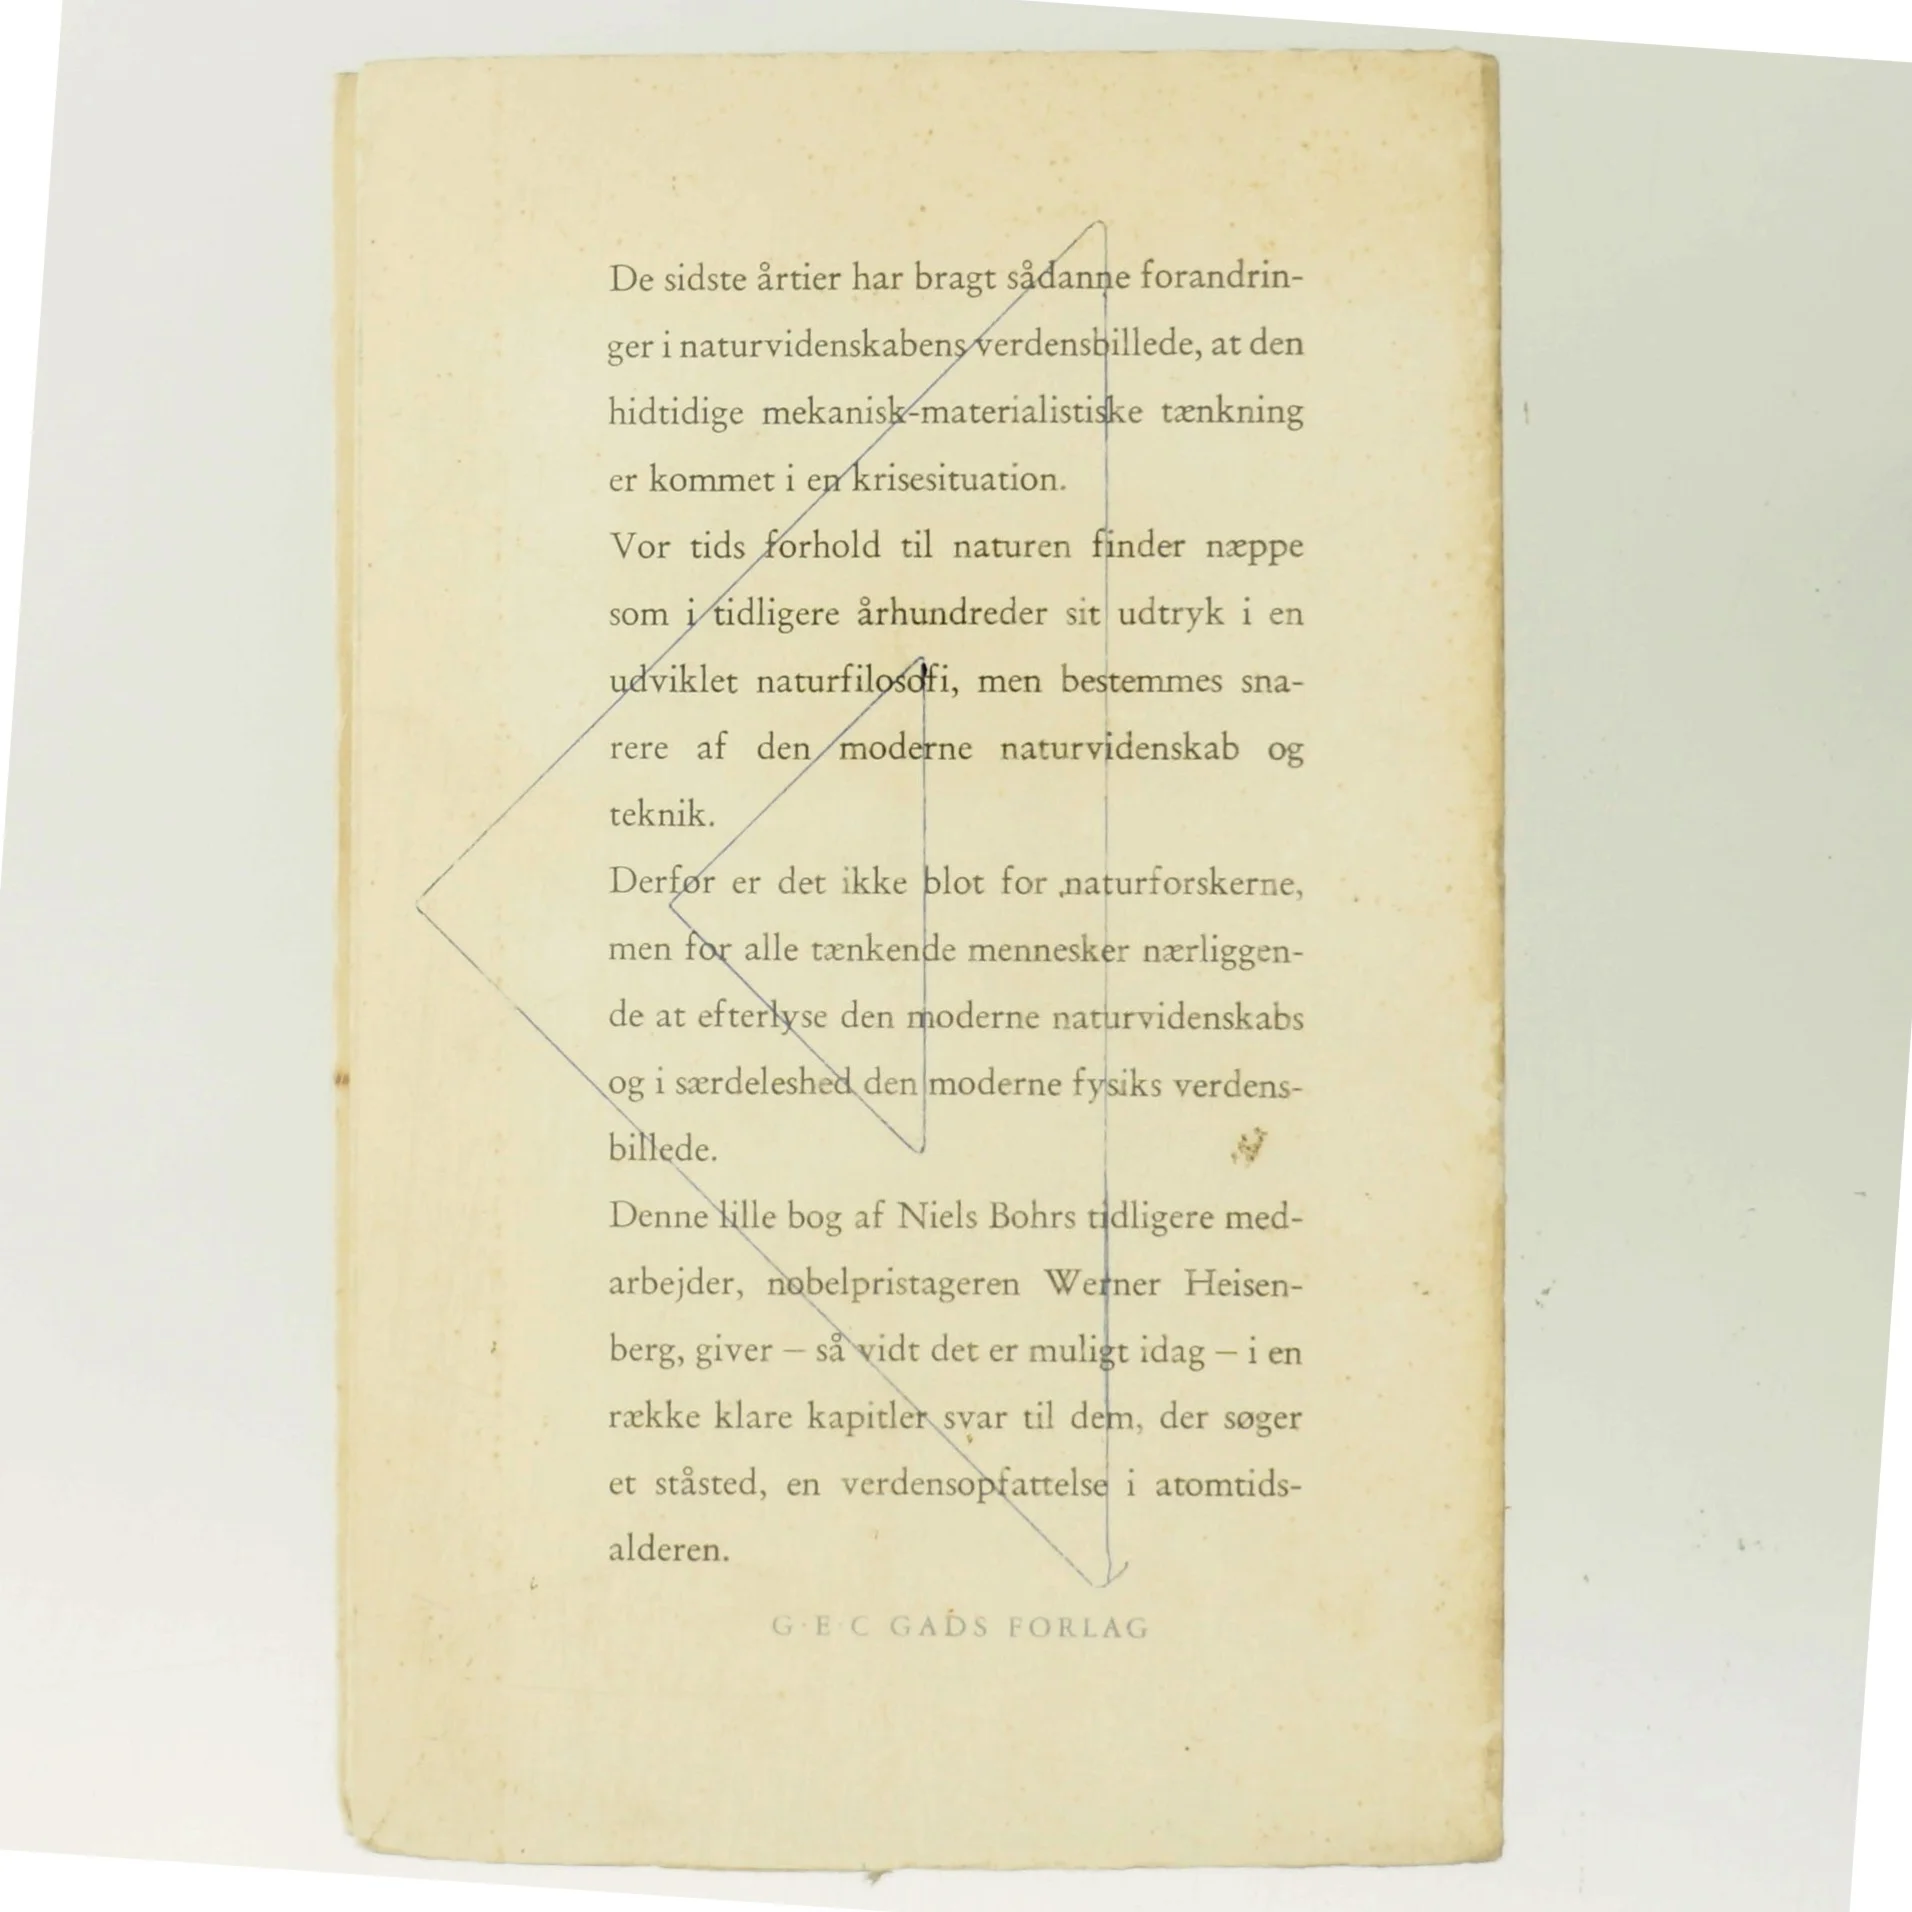 De sidste årtier har bragt sådanne forandrin-
ger i naturvidenskabens verdensbillede, at den
hidtidige mekanisk-materialistiske tænkning
er kommet i en krisesituation.
Vor tids forhold til naturen finder næppe
som i tidligere århundreder sit udtryk i en
udviklet naturfilosofi, men bestemmes sna-
rere af den moderne naturvidenskab og
teknik.
Derfor er det ikke blot for naturforskerne,
men for alle tænkende mennesker nærliggen-
de at efterlyse den moderne naturvidenskabs
og i særdeleshed den moderne fysiks verdens-
billede.
Denne lille bog af Niels Bohrs tidligere med-
arbejder, nobelpristageren Werner Heisen-
berg, giver – så vidt det er muligt idag – i en
række klare kapitler svar til dem, der søger
et ståsted, en verdensopfattelse i atomtids-
alderen.
G·E·C GADS FORLAG